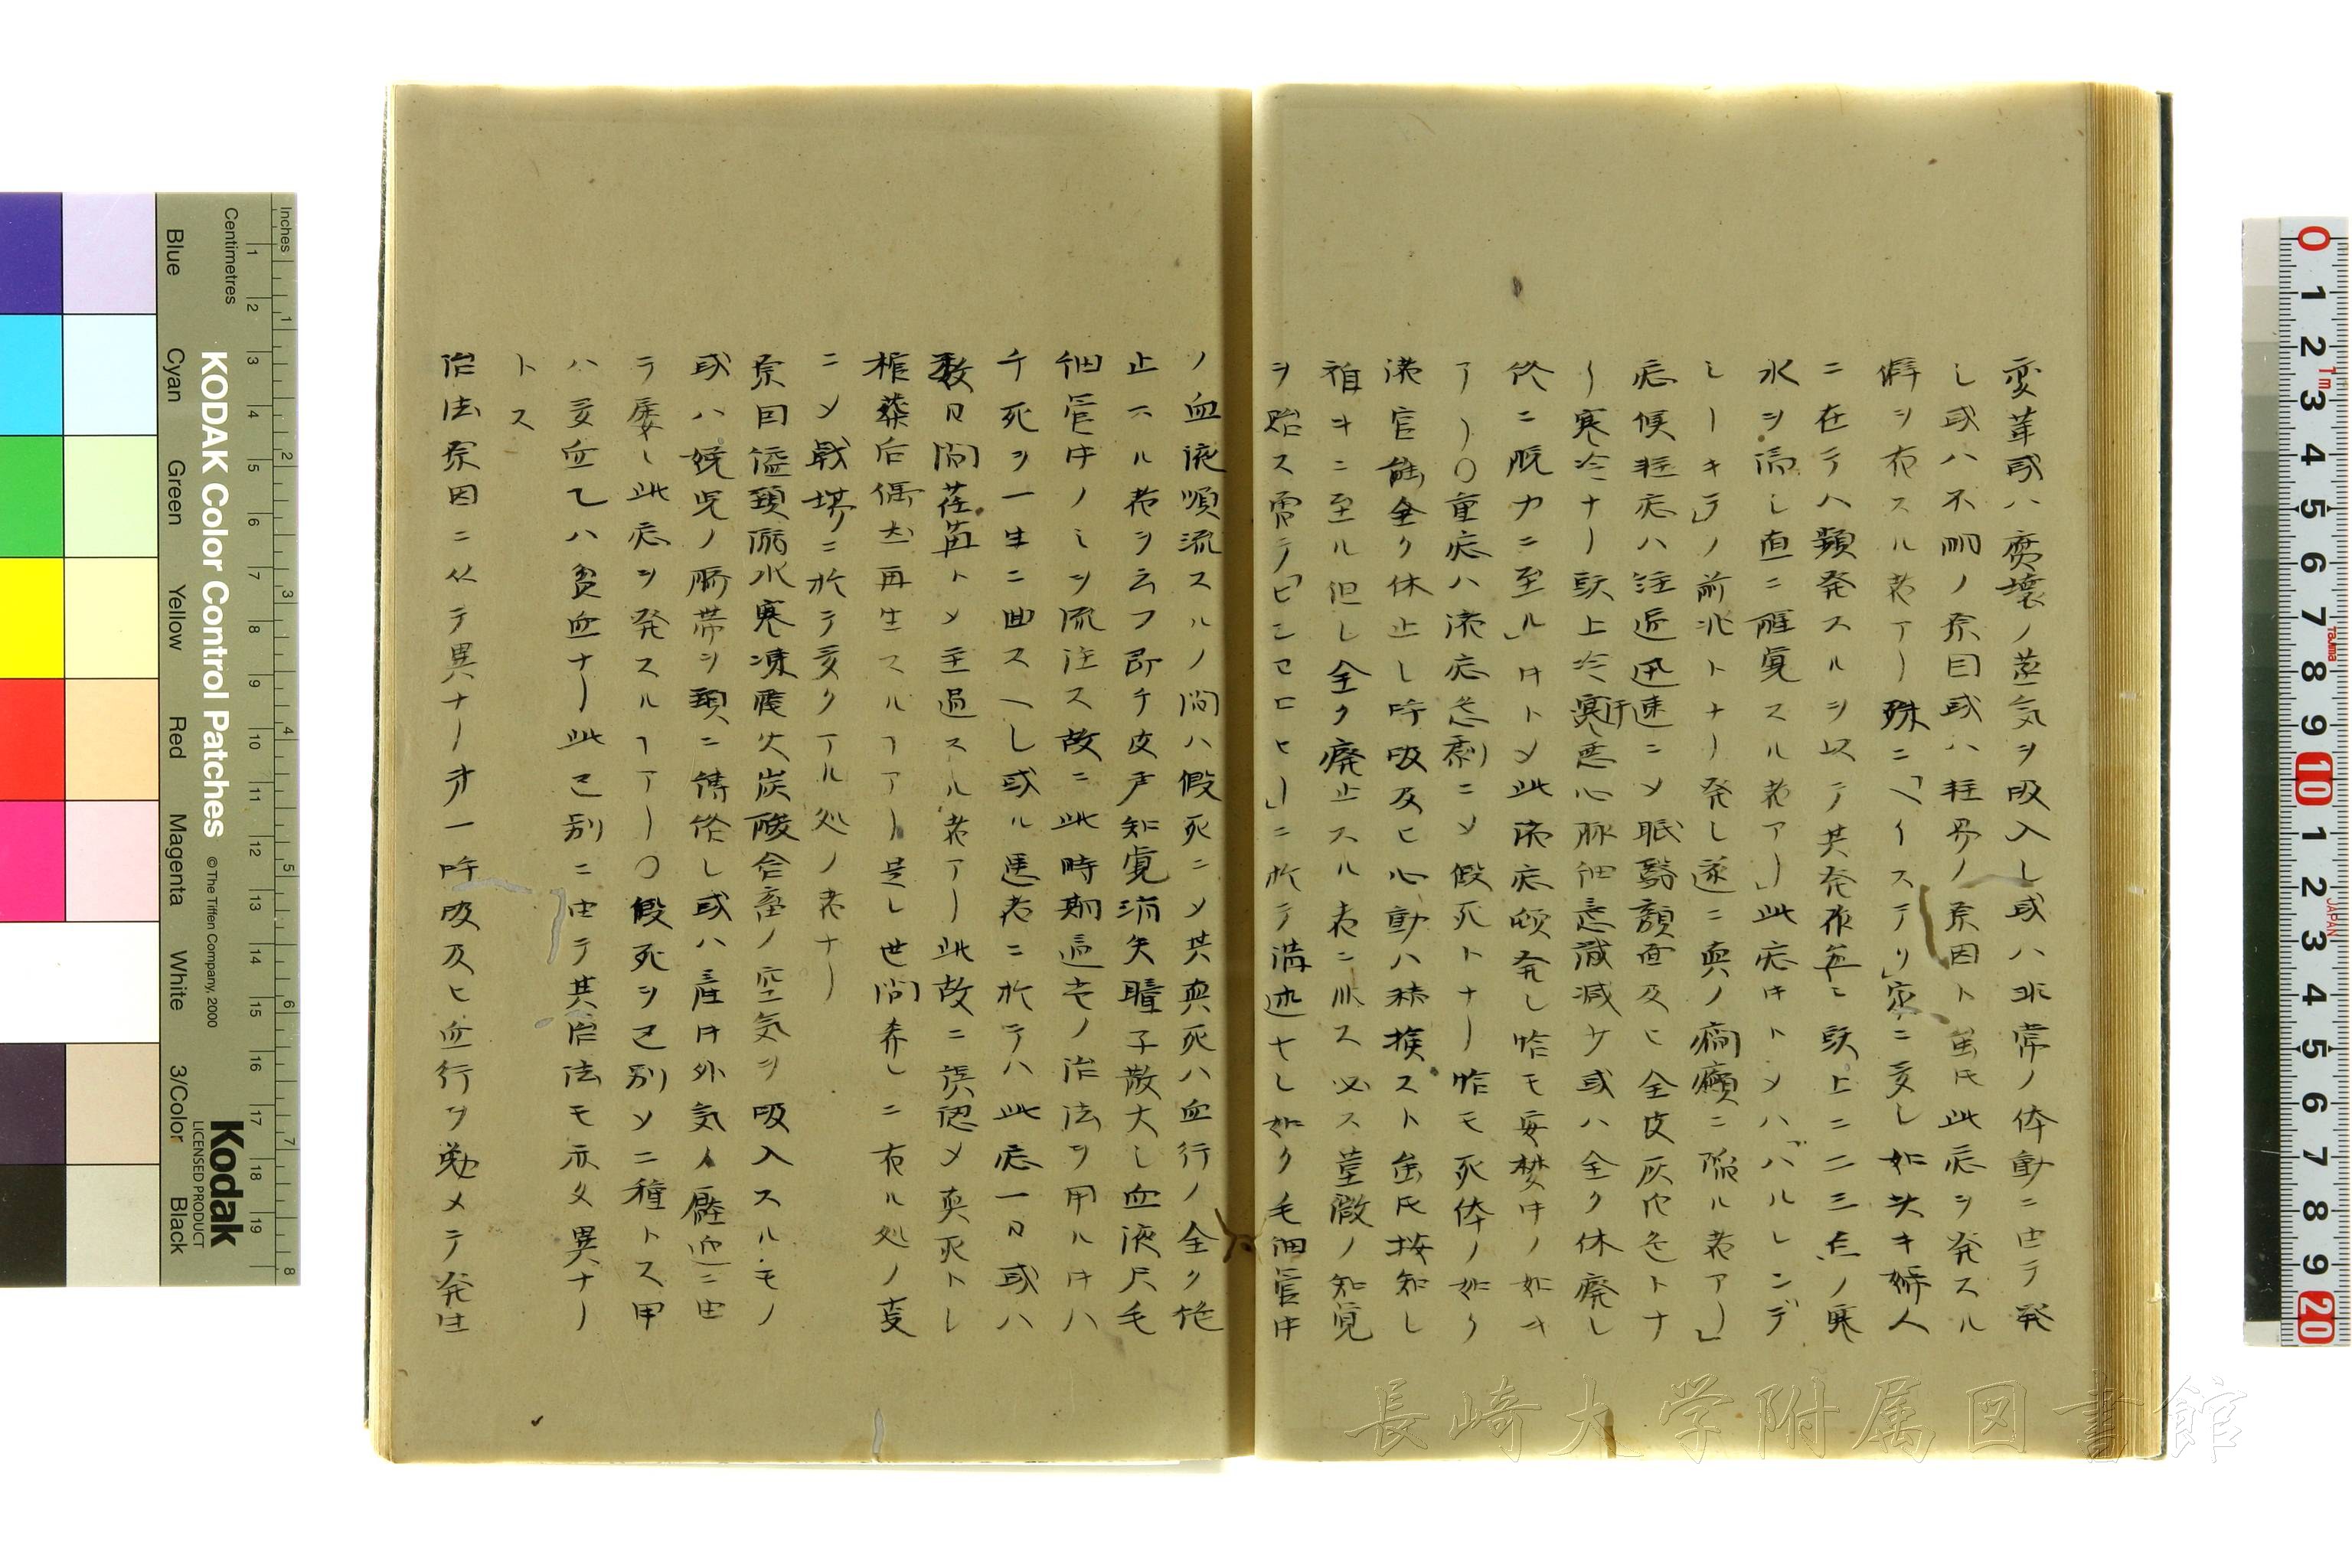 変革或ハ腐壊ノ蒸気ヲ吸入し或ハ非常ノ体動ニ由テ発
し或ハ不明ノ原因或ハ経界ノ原因ト雖𪜈此症ヲ発スル
癖ヲ有スル者アリ殊ニ「ヘイステリ」家ニ多し如夫キ婦人
ニ在テハ頻発スルヲ以テ其発夜毎ニ頭上ニ二三点ノ寒
水ヲ滴し直ニ醒覚スル者アリ」此症中トメハ「バルレンデ
し一キテ」ノ前兆トナリ発し遂ニ真ノ癲癇ニ陥ル者アリ」
症候軽症ハ迅速ニメ眠鬱顔面及ヒ全皮灰白色トナ
リ寒冷ナリ頭上冷汗悪心脈細意識減少或ハ全ク休廃し
終ニ脱力ニ至ル」中トメ此諸症頓発し恰モ安楚中ノ如キ
アリ〇重症ハ諸症急劇ニメ假死トナリ恰モ死体ノ如ク
諸官能全ク休止し呼吸及ヒ心動ハ休止スト雖𪜈按知し
得キニ至ル但し全ク廃止スル者ニ非ス必ス茎微ノ知覚
ヲ貽ス而テ「ヒシセロヒー」ニ於テ講述セし如ク毛細管中
ノ血液順流スルノ間ハ假死ニメ其真死ハ血行ノ全ク絶
止スル者ヲ云フ即チ皮声知覚消失瞳子散大し血液尺毛
細管中ノミヲ流注ス故ニ此時期適宅ノ治法ヲ用ル中ハ
千死ヲ一生ニ回スヘし或ル患者ニ於テハ此症一日或ハ
数日間荏苒トメ経過スル者アリ此故ニ誤認メ真死トし
棺葬后偶然再生スルヿアリ是し世間希しニ有ル処ノ変
ニメ戦場ニ於テ多クアル処ノ者ナリ
原因縊頚溺水寒凍震火炭酸含畜ノ空気ヲ吸入スルモノ
或ハ娩児ノ臍帯ヲ頚ニ纏絡し或ハ産中外気ノ壓迫ニ由
テ屡し此症ヲ発スルヿアリ〇假死ヲ已別メ二種トス甲
ハ多血乙ハ貧血ナリ此已別ニ由テ其治法モ亦タ異ナリ
トス
治法原因ニ从テ異ナリ才一呼吸及ヒ血行ヲ勉メテ発生
KODAK Color Control Patches
© The Tiffen Company, 2000
Kodak
LICENSED PRODUCT
Inches
Centimetres
Blue Cyan Green Yellow Red Magenta White 3/Color Black
長崎大学附属図書館